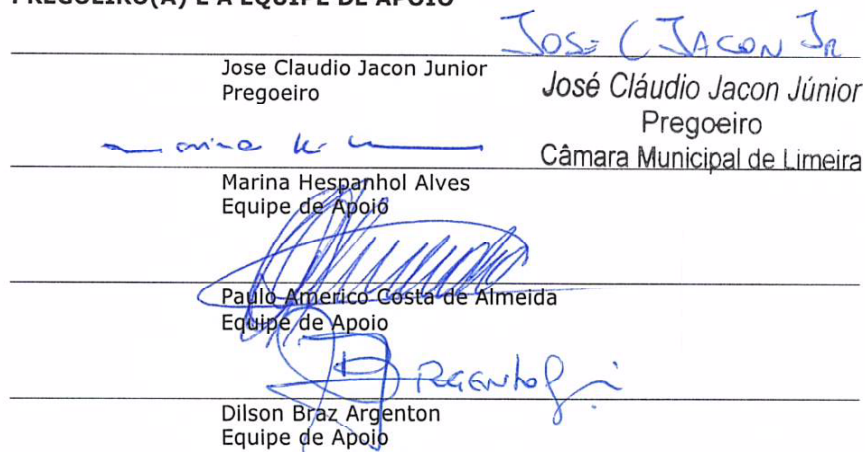 PREGOEIRO(A) E A EQUIPE DE APOIO
JOSE C JACON JR
Jose Claudio Jacon Junior
Pregoeiro
José Cláudio Jacon Júnior
Pregoeiro
Câmara Municipal de Limeira
Marina Hespanhol Alves
Equipe de Apoio
Paulo Americo Costa de Almeida
Equipe de Apoio
Dilson Braz Argenton
Equipe de Apoio